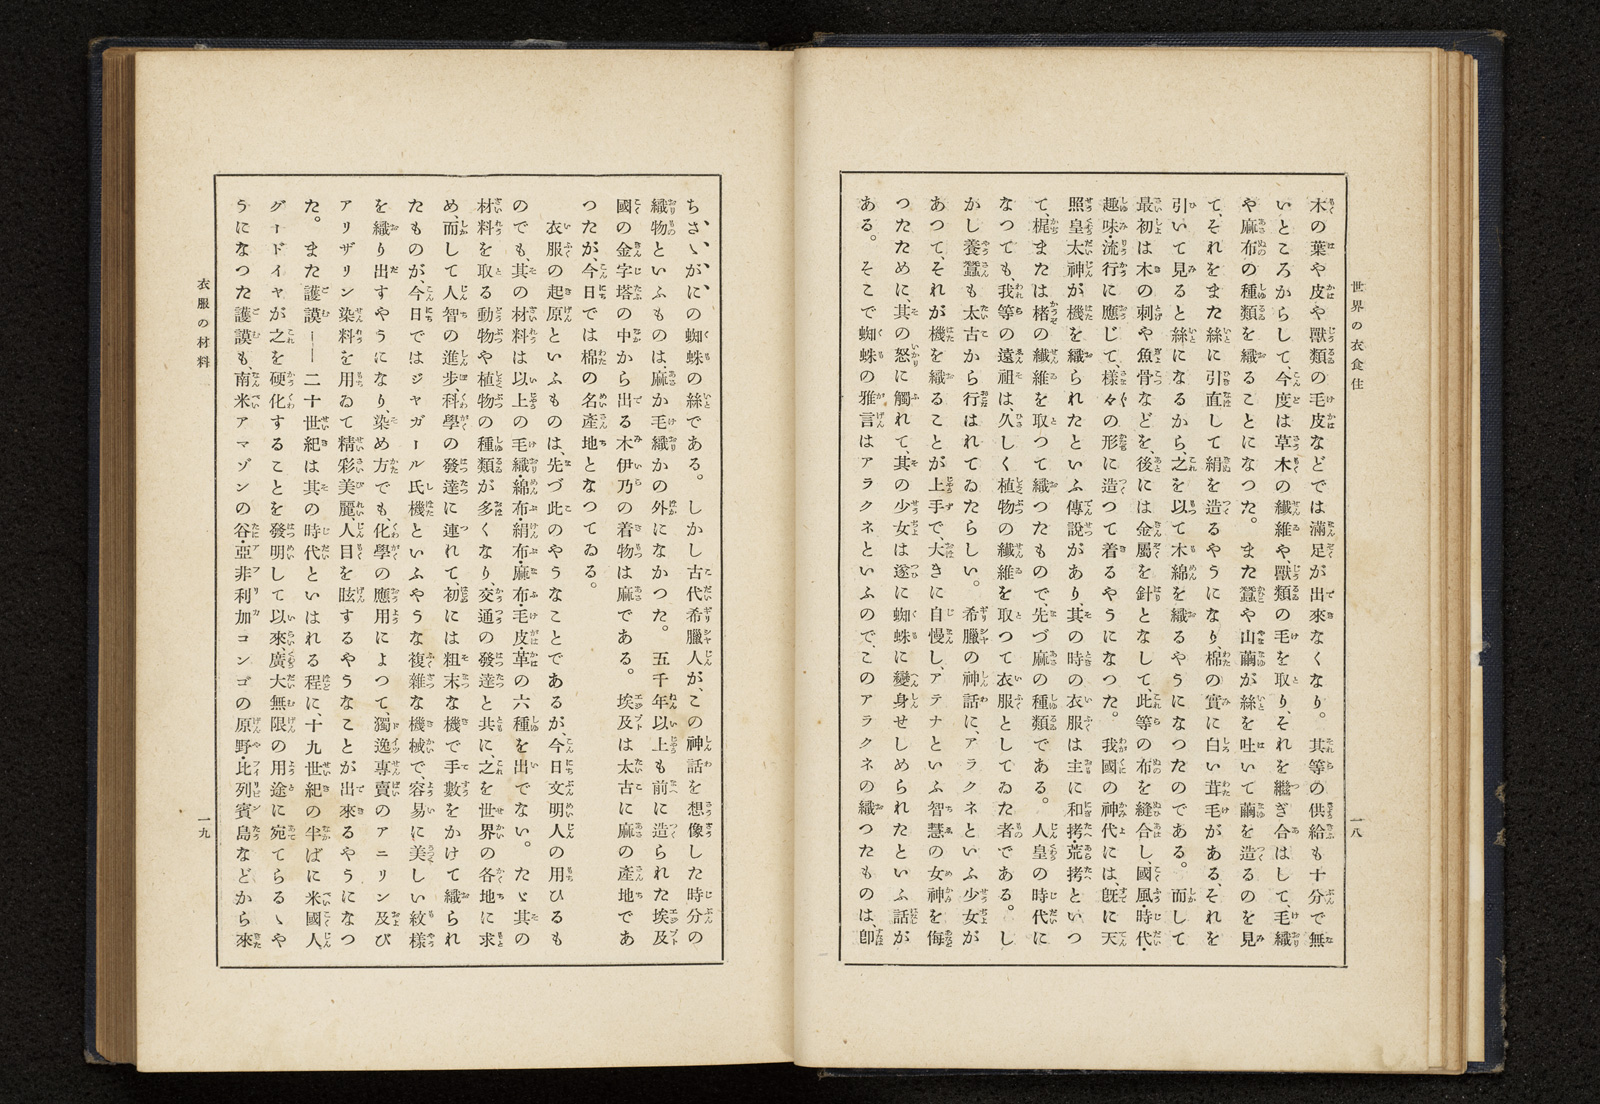 世界の衣食住
一八
木の葉や皮や獸類の毛皮などでは滿足が出來なくなり。其等の供給も十分で無
いところからして、今度は草木の纖維や、獸類の毛を取り、それを繼ぎ合はして、毛織
や麻布の種類を織ることになつた。また蠶や山繭が絲を吐いて繭を造るのを見
て、それをまた絲に引直して絹を造るやうになり、棉の實に白い茸毛がある、それを
引いて見ると絲になるから、之を以て木綿を織るやうになつたのである。而して
最初は木の刺や魚骨などを、後には金屬を針となして、此等の布を縫合し、國風・時代・
趣味・流行に應じて、樣々の形に造つて着るやうになつた。我國の神代には、旣に天
照皇太神が機を織られたといふ傳說があり、其の時の衣服は主に和拷・荒拷といつ
て、梶または楮の纖維を取つて織つたもので、先づ麻の種類である。人皇の時代に
なつても、我等の遠祖は、久しく植物の纖維を取つて衣服としてゐた者である。し
かし養蠶も太古から行はれてゐたらしい。希臘の神話に、アラクネといふ少女が
あつて、それが機を織ることが上手で、大きに自慢し、アテナといふ智慧の女神を侮
つたために、其の怒に觸れて、其の少女は遂に蜘蛛に變身せしめられたといふ話が
ある。そこで蜘蛛の雅言はアラクネといふので、このアラクネの織つたものは、卽
ちさゝがにの蜘蛛の絲である。しかし古代希臘人が、この神話を想像した時分の
織物といふものは、麻か毛織かの外になかつた。五千年以上も前に造られた埃及
國の金字塔の中から出る木伊乃の着物は麻である。埃及は太古に麻の產地であ
つたが、今日では棉の名產地となつてゐる。
衣服の起原といふものは、先づ此のやうなことであるが、今日文明人の用ひるも
のでも、其の材料は以上の毛織・綿布・絹布・麻布・毛皮・革の六種を出でない。たゞ其の
材料を取る動物や植物の種類が多くなり、交通の發達と共に、之を世界の各地に求
め、而して人智の進步、科學の發達に連れて、初には粗末な機で手數をかけて織られ
たものが、今日ではジヤガール氏機といふやうな複雜な機械で、容易に美しい紋樣
を織り出すやうになり、染め方でも、化學の應用によつて、獨逸專賣のアニリン及び
アリザリン染料を用ゐて精彩美麗、人目を眩するやうなことが出來るやうになつ
た。また護謨――二十世紀は其の時代といはれる程に、十九世紀の半ばに米國人
グードイヤが之を硬化することを發明して以來、廣大無限の用途に宛てらるゝや
うになつた護謨も、南米アマゾンの谷・亞非利加コンゴの原野・比列賓島などから來
衣服の材料
一九